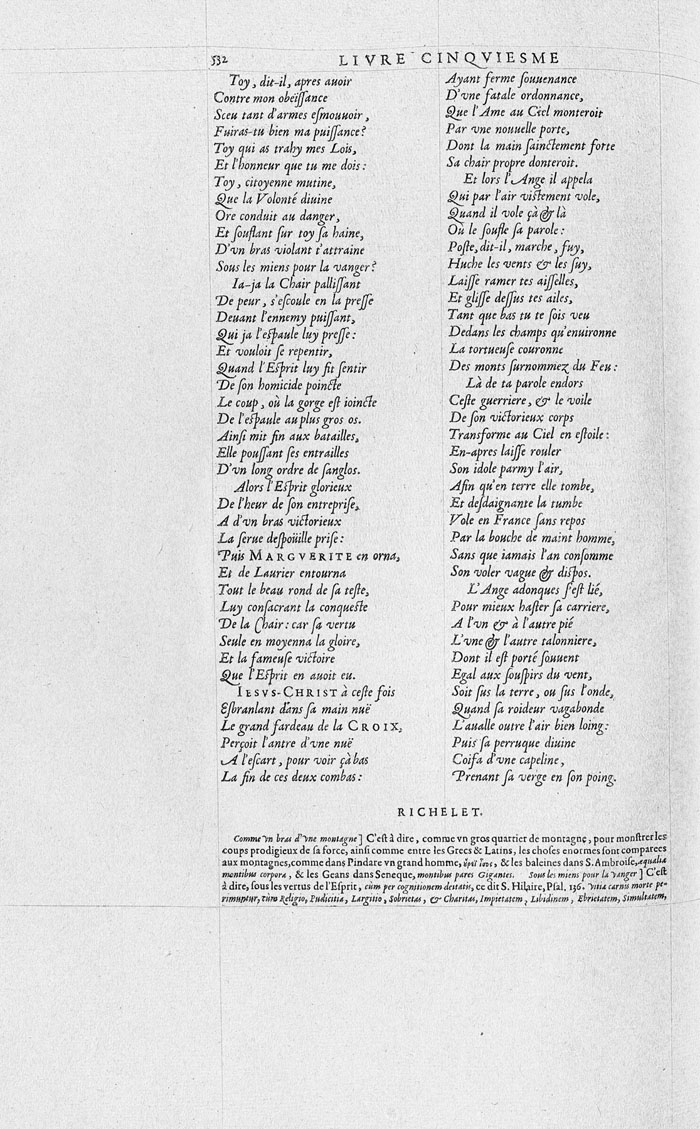 532 LIVRE CINQVIESME
Toy, dit-il, apres auoir
Contre mon obeïſſance
Sceu tant d'armes eſmouuoir,
Fuiras-tu bien ma puiſſance?
Toy qui as trahy mes Lois,
Et l'honneur que tu me dois:
Toy, citoyenne mutine,
Que la Volonté diuine
Ore conduit au danger,
Et ſouflant ſur toy ſa haine,
D'vn bras violant t'attraine
Sous les miens pour la vanger?
Ia-ja la Chair palliſſant
De peur, s'eſcoule en la preſſe
Deuant l'ennemy puiſſant,
Qui ja l'eſpaule luy preſſe:
Et vouloit ſe repentir,
Quand l'Eſprit luy fit ſentir
De ſon homicide poincte
Le coup, où la gorge eſt ioincte
De l'eſpaule au plus gros os.
Ainſi mit fin aux batailles,
Elle pouſſant ſes entrailles
D'vn long ordre de ſanglos.
Alors l'Eſprit glorieux
De l'heur de ſon entrepriſe,
A d'vn bras victorieux
La ſerue deſpoüille priſe:
Puis MARGVERITE en orna,
Et de Laurier entourna
Tout le beau rond de ſa teſte,
Luy conſacrant la conqueſte
De la Chair: car ſa vertu
Seule en moyenna la gloire,
Et la fameuſe victoire
Que l'Eſprit en auoit eu.
IESVS-CHRIST à ceſte fois
Eſbranlant dans ſa main nuë
Le grand fardeau de la CROIX,
Perçoit l'antre d'vne nuë
A l'eſcart, pour voir çà bas
La fin de ces deux combas:
Ayant ferme ſouuenance
D'vne fatale ordonnance,
Que l'Ame au Ciel monteroit
Par vne nouuelle porte,
Dont la main ſainctement forte
Sa chair propre donteroit.
Et lors l'Ange il appela
Qui par l'air viſtement vole,
Quand il vole çà & là
Où le ſoufle ſa parole:
Poſte, dit-il, marche, fuy,
Huche les vents & les ſuy,
Laiſſe ramer tes aiſſelles,
Et gliſſe deſſus tes ailes,
Tant que bas tu te ſois veu
Dedans les champs qu'enuironne
La tortueuſe couronne
Des monts ſurnommez du Feu:
Là de ta parole endors
Ceſte guerriere, & le voile
De ſon victorieux corps
Transforme au Ciel en eſtoile:
En-apres laiſſe rouler
Son idole parmy l'air,
Afin qu'en terre elle tombe,
Et deſdaignante la tumbe
Vole en France ſans repos
Par la bouche de maint homme,
Sans que iamais l'an conſomme
Son voler vague & diſpos.
L'Ange adonques ſ'eſt lié,
Pour mieux haſter ſa carriere,
A l'vn & à l'autre pié
L'vne & l'autre talonniere,
Dont il eſt porté ſouuent
Egal aux ſouſpirs du vent,
Soit ſus la terre, ou ſus l'onde,
Quand ſa roideur vagabonde
L'aualle outre l'air bien loing:
Puis ſa perruque diuine
Coifa d'vne capeline,
Prenant ſa verge en ſon poing.
RICHELET.
Comme vn bras d'vne montagne] C'eſt à dire, comme vn gros quartier de montagne, pour monſtrer les
coups prodigieux de ſa force, ainſi comme entre les Grecs & Latins, les choſes enormes ſont comparees
aux montagnes, comme dans Pindare vn grand homme, & les baleines dans S. Ambroiſe, æqualia
montibus corpora, & les Geans dans Seneque, montibus pares Gigantes. Sous les miens pour la vanger] C'eſt
à dire, ſous les vertus de l'Eſprit, cùm per cognitionem deitatis, ce dit S. Hilaire, Pſal. 136. vitia carnis morte pe-
rimuntur, tùm Religio, Pudicitia, Largitio, Sobrietas, & Charitas, Impietatem, Libidinem, Ebrietatem, Simultatem,